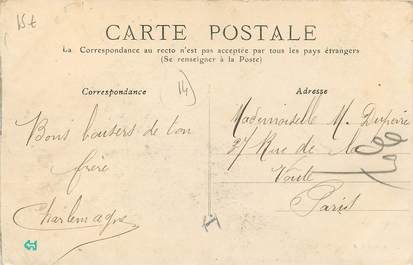 15 €
CARTE POSTALE
La Correspondance au recto n'est pas acceptée par tous les pays étrangers
(Se renseigner à la Poste)
Correspondance
14
Adresse
Bons baisers de ton
frère
Charlemagne
Mademoiselle M. Dupierre
27 Rue de la
Voute
Paris